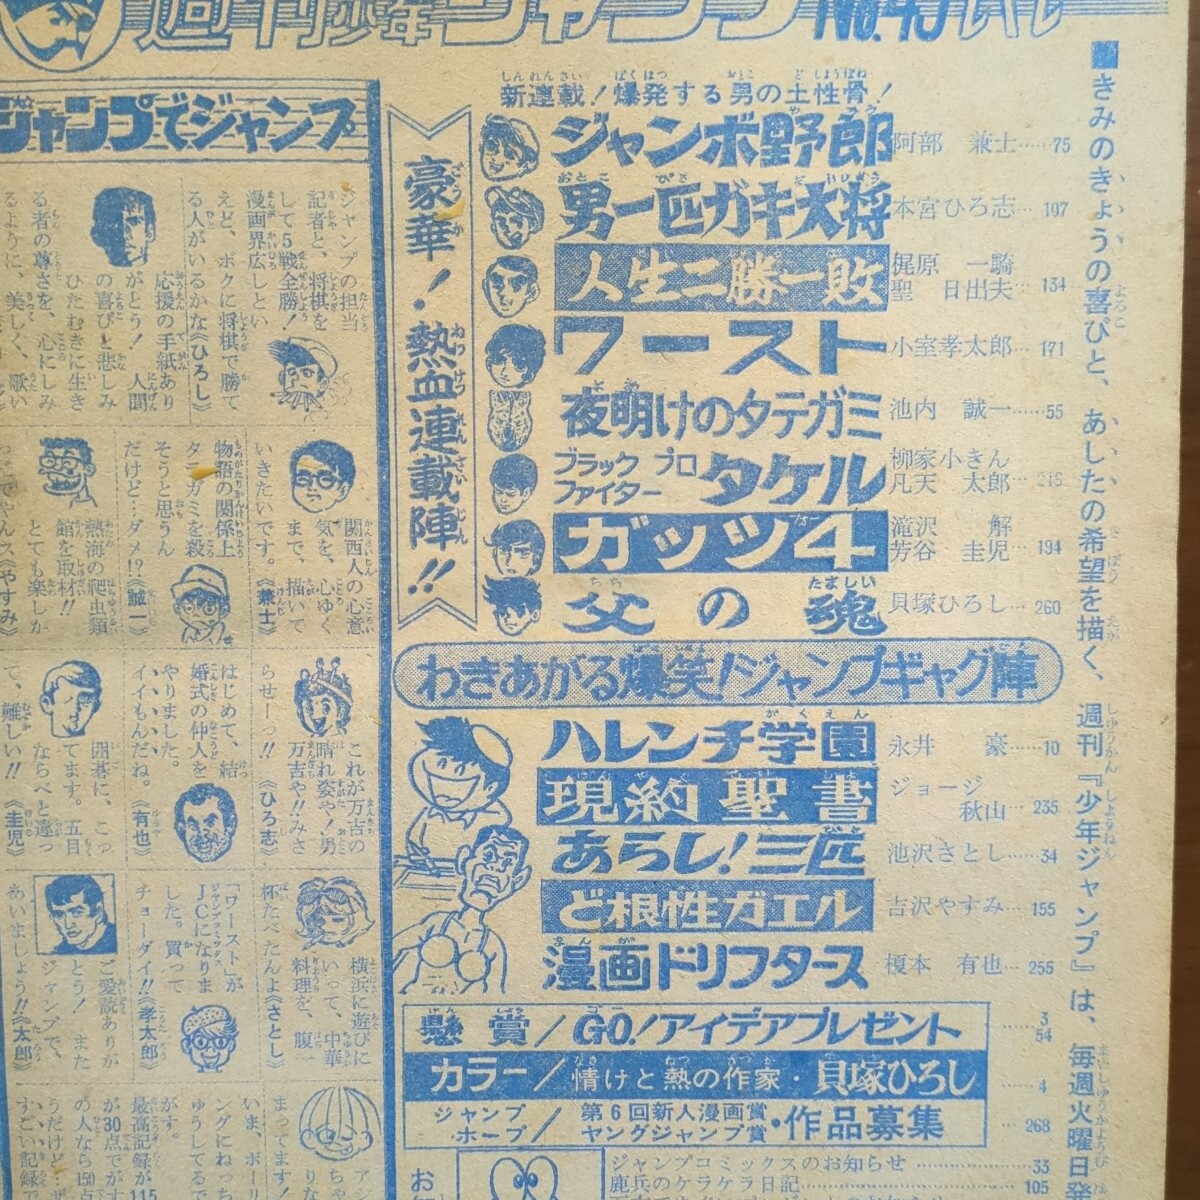 週刊少年ジャンプ No.45
新連載!爆発する男の土性骨!
ジャンボ野郎 阿部 兼士……75
男一匹ガキ大将 本宮ひろ志…107
人生二勝一敗 梶原 一騎 聖 日出夫…134
ワースト 小室孝太郎…171
夜明けのタテガミ 池内 誠一……55
ブラック プロ ファイター タケル 柳家小きん 凡天 太郎
ガッツ4 滝沢 解 芳谷 圭児…194
父の魂 貝塚ひろし…260
豪華!熱血連載陣!!
わきあがる爆笑!ジャンプギャグ陣
ハレンチ学園 永井 豪……10
現約聖書 ジョージ 秋山…235
あらし!三匹 池沢さとし……34
ど根性ガエル 吉沢やすみ…155
漫画ドリフターズ 榎本 有也…255
懸賞/GO!アイデアプレゼント……3 54
カラー/情けと熱の作家・貝塚ひろし……4
ジャンプ ホープ/第6回新人漫画賞 ヤングジャンプ賞・作品募集……268
ジャンプコミックスのお知らせ……33
鹿兵のケラケラ日記……105
■きみのきょうの喜びと、あしたの希望を描く、週刊『少年ジャンプ』は、毎週火曜日発
ジャンプでジャンプ
ジャンプの担当
記者と、将棋を
して5戦全勝!
漫画界広しとい
えど、ボクに将棋で勝て
る人がいるかな《ひろし》
応援の手紙あり
がとう! 人間
の喜びと悲しみ
ひたむきに生き
る者の尊さを、心にしみ
るように、美しく、歌い
関西人の心意
気を、心ゆく
まで、描いて
いきたいです。《兼士》
物語の関係上
タテガミを殺
そうと思うん
だけど…ダメ!?《誠一》
熱海の爬虫類
館を取材!!
とても楽しか
ったでやんス《やすみ》
これが万吉の
晴れ姿や!男
万吉や!!みさ
らせーっ!!《ひろ志》
はじめて、結
婚式の仲人を
やりました。
イイもんだね。《有也》
囲碁に、こっ
てます。五目
ならべと違っ
て、難しい!!《圭児》
横浜に遊びに
いって、中華
料理を、腹一
杯たべたんよ《さとし》
「ワースト」が
JCになりま
した。買って
チョーダイ!!《孝太郎》
ご愛読ありが
とう! また
ジャンプで、
あいましょう!!《太郎》